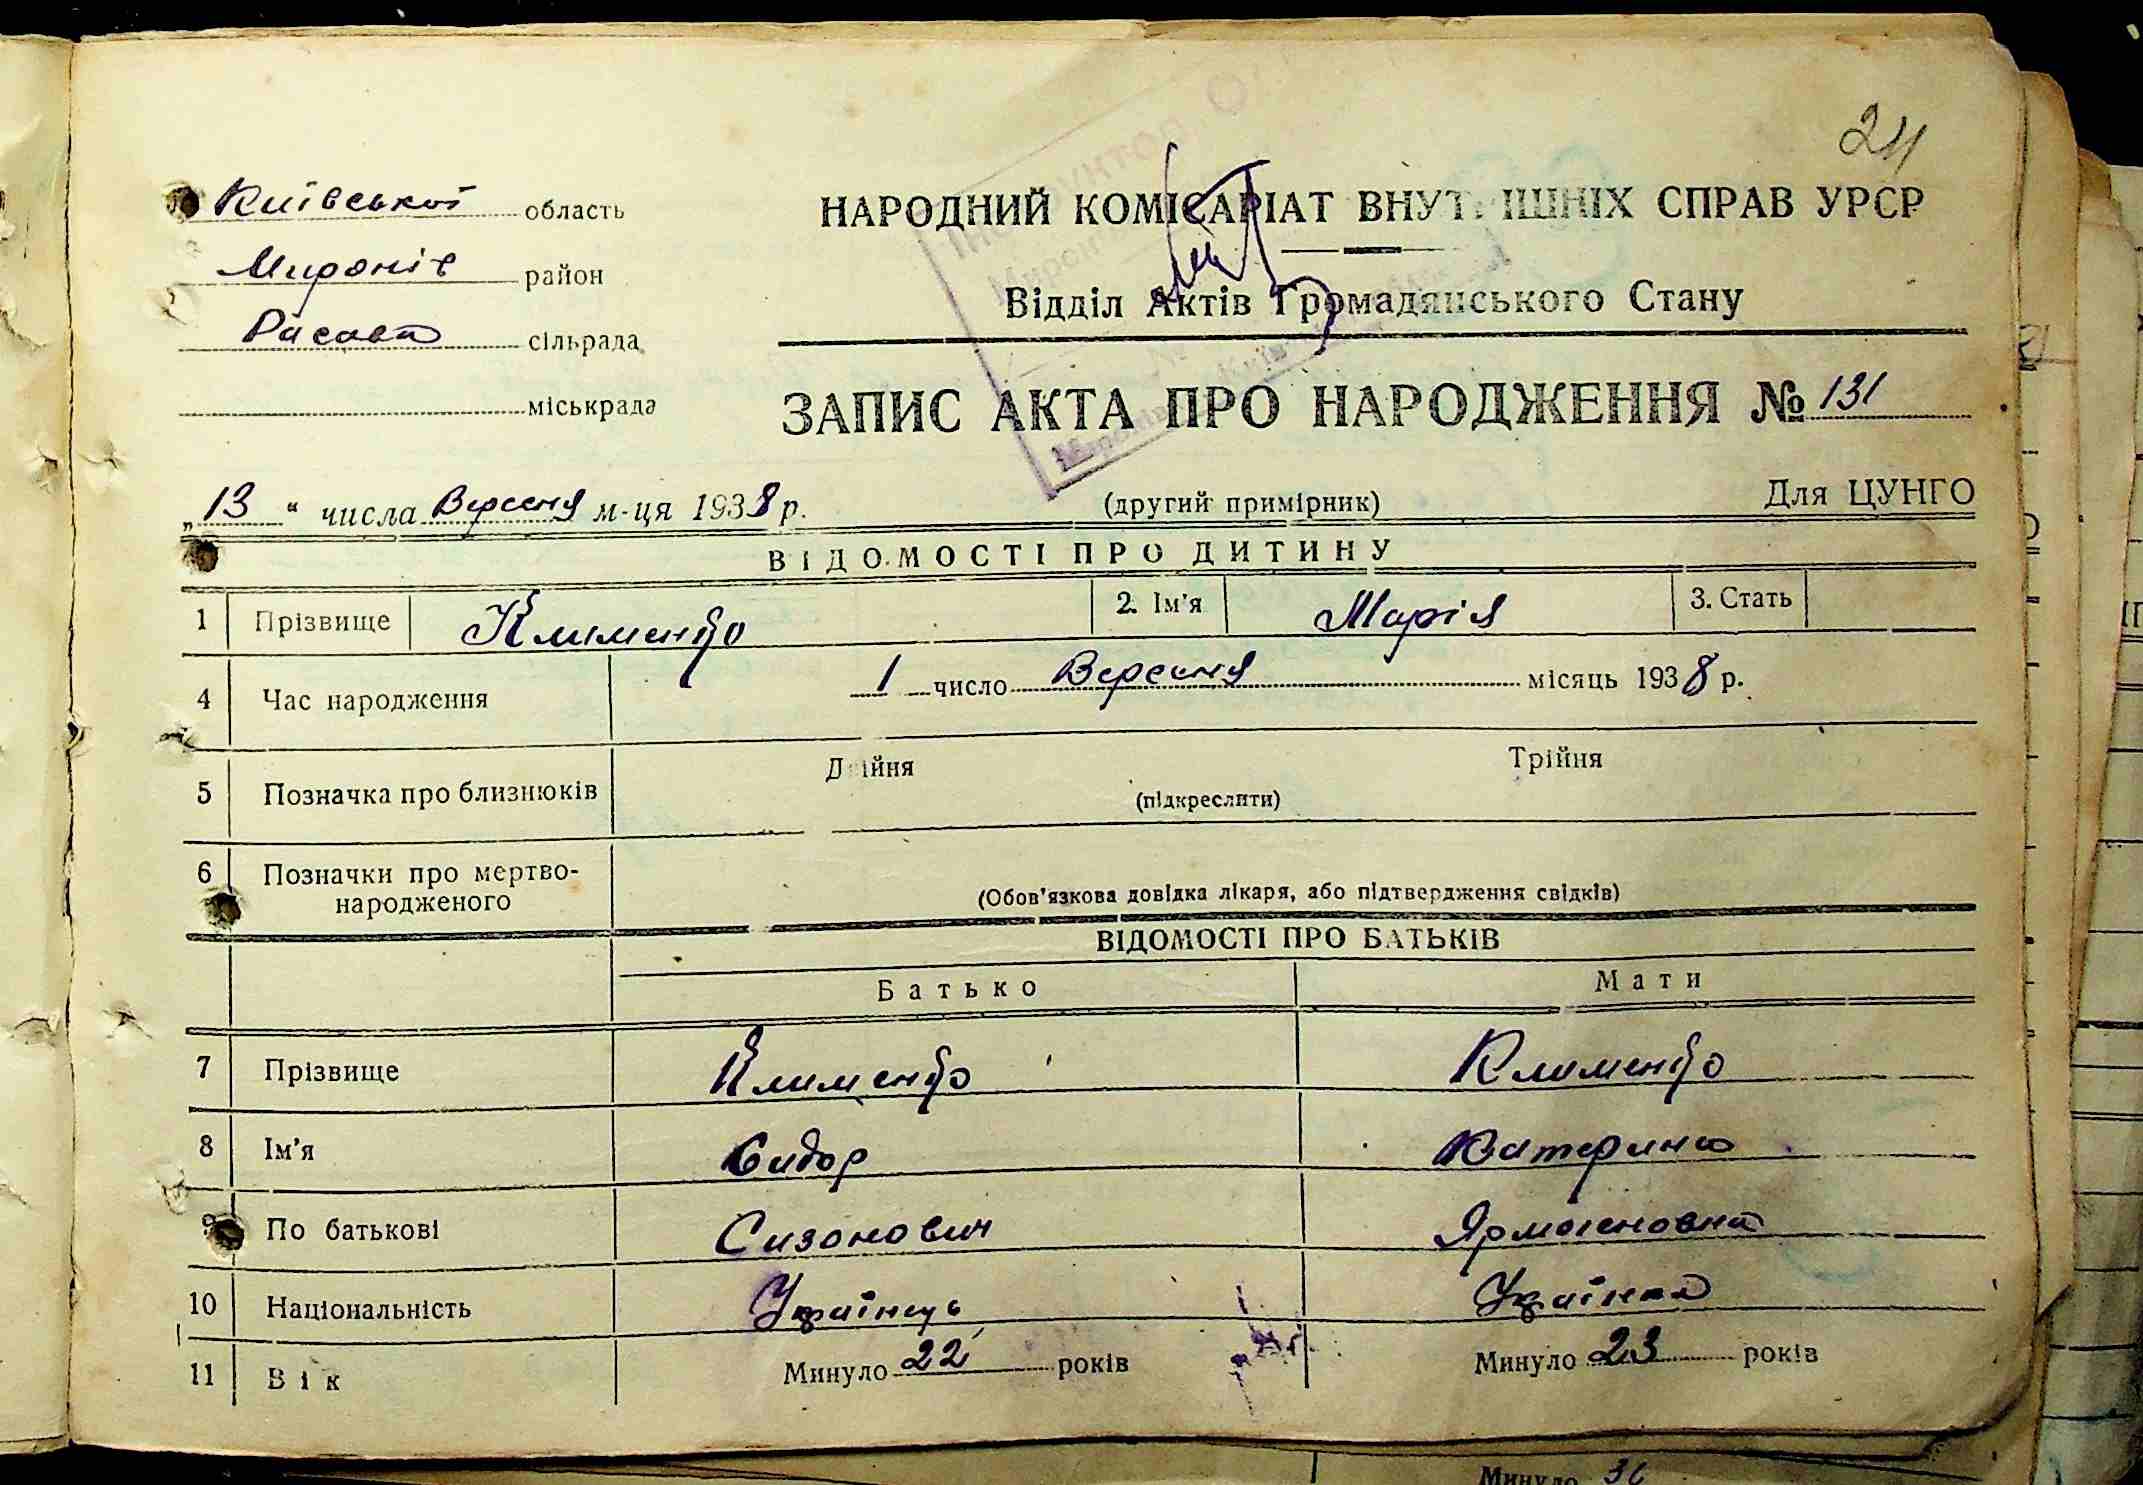 24
Київської область
НАРОДНИЙ КОМІСАРІАТ ВНУТ ІШНІХ СПРАВ УРСР
Миронів район
Відділ Актів Громадянського Стану
Расава сільрада
міськрада
ЗАПИС АКТА ПРО НАРОДЖЕННЯ № 131
„13“ числа Вересня м-ця 1938 р.
(другий примірник)
Для ЦУНГО
ВІДОМОСТІ ПРО ДИТИНУ
1 Прізвище Клименко 2. Ім'я Марія 3. Стать
4 Час народження 1 число Вересня місяць 1938 р.
5 Позначка про близнюків Двійня Трійня
(підкреслити)
6 Позначки про мертво-
народженого
(Обов'язкова довідка лікаря, або підтвердження свідків)
ВІДОМОСТІ ПРО БАТЬКІВ
Батько Мати
7 Прізвище Клименко Клименко
8 Ім'я Сидор Катерина
9 По батькові Сизонович
10 Національність Українець Українка
11 Вік Минуло 22 років Минуло 23 років
Минуло 36